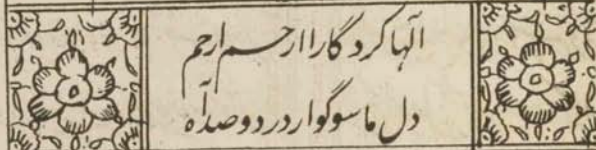 الها کردگارا ارحم ارحم
دل ما سوگوار درد و صد آه